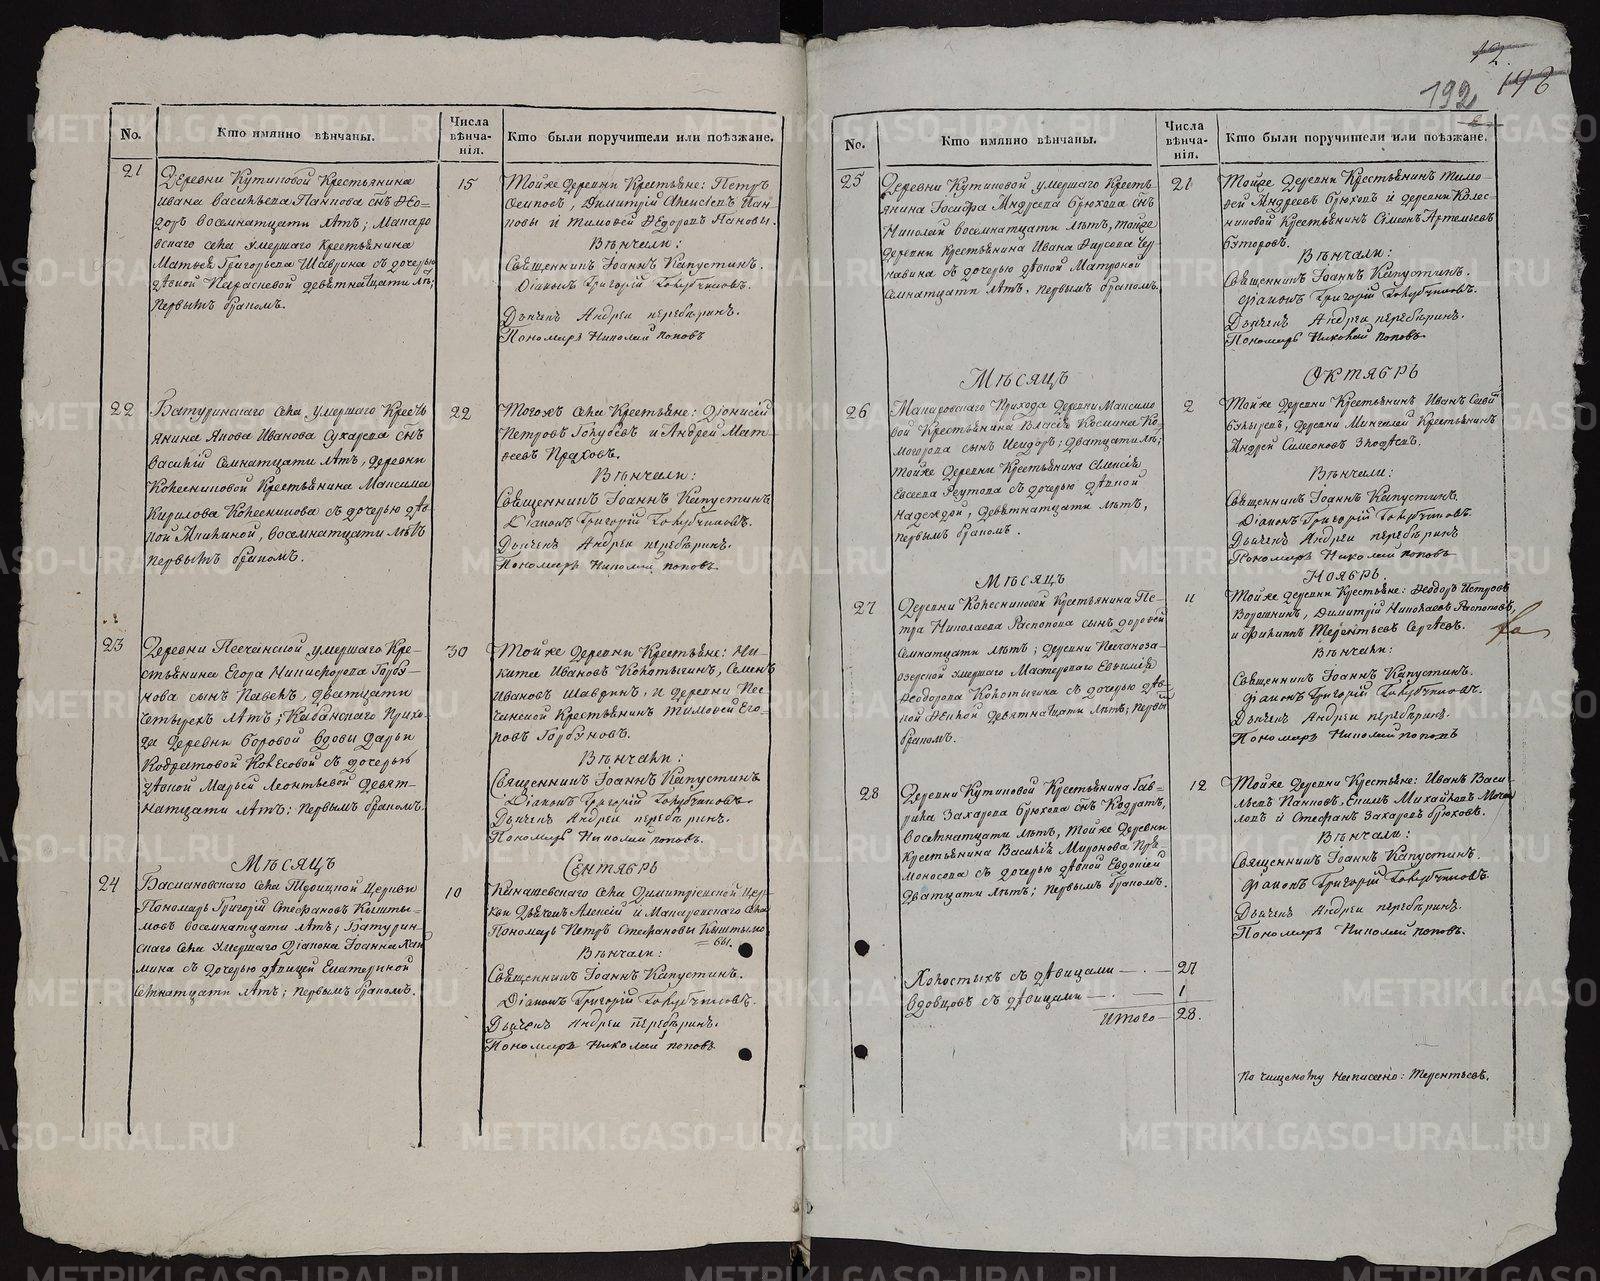 No.
Кто имянно вѣнчаны.
Числа
вѣнча-
нія.
Кто были поручители или поѣзжане.
21
Деревни Кутиковой Крестьянина
Ивана Васильева Панкова сн̃ъ Ѳео-
доръ восемнатцати лѣтъ; Макаро
вскаго села умершаго Крестьянина
Матвея Григорьева Шаврина съ дочерью
дѣвкой девѣтнатцати лѣ;
первымъ бракомъ.
15
Тойже деревни Крестьяне: Петръ
Осиповъ, Димитрій Алексѣевъ Пан
ковы и Тимоѳей Ѳедоровъ Пановы.
Вѣнчали:
Священникъ Іоаннъ Капустинъ.
Діаконъ Григорій Голубчиковъ.
Дьячекъ Андреи перебѣринъ.
Пономарь Николай поповъ
22
Батуринскаго села, умершаго Кресть
янина Якова Иванова Сухарева сн̃ъ
Василій Семнатцати лѣтъ, деревни
Колесниковой Крестьянина Максима
Кирилова Колесникова съ дочерью дѣв
кой Акилиной, восемнатцати лѣтъ
первымъ бракомъ.
22
Тогожъ села Крестьяне: Діонисій
Петровъ Голубевъ и Андрей Мат
веевъ Праховъ.
Вѣнчали:
Священникъ Іоаннъ Капустинъ
Діаконъ Григорій Голубчиковъ.
Дьячекъ Андреи перебѣринъ.
Пономарь Николай поповъ
23
Деревни Песчанской умершаго Кре-
стьянина Егора Никифорова Горбу-
нова сынъ Павелъ, двятцати
четырехъ лѣтъ; Кабанскаго Прихо-
да деревни Боровой вдовы Дарьи
Кодратовой Колесовой съ дочерью
дѣвкой Марьей Леонтьевой девят-
натцати лѣтъ: первымъ бракомъ.
30
Тойже деревни Крестьяне: Ни-
кита Ивановъ Колотыгинъ, Семенъ
Ивановъ Шавринъ, и деревни Пес
чанской Крестьянинъ Тимоѳей Его-
ровъ Горбуновъ.
Вѣнчали:
Священникъ Іоаннъ Капустинъ
Діаконъ Григорій Голубчиковъ.
Дьячекъ Андреи перебѣринъ.
Пономарь Николай поповъ.
Мѣсяцъ
Сентябрь
24
Басмановскаго села Троицкой Церкви
Пономарь Григорій Стефановъ Кышты-
мовъ восемнатцати лѣтъ; Батурин
скаго села умершаго Діакона Іоанна
мина съ дочерью дѣвицей Екатериной
семнатцати лѣтъ; первымъ бракомъ.
10
Канашевскаго села Димитріевской Цер-
кви Дьячекъ Алексій и Макаровскаго села
Пономарь Петръ Стефановы Кыштымо
=вы.
Вѣнчали:
Священникъ Іоаннъ Капустинъ.
Діаконъ Григорій Голубчиковъ.
Дьячекъ Андреи перебѣринъ.
Пономарь Николай поповъ
12.
192
No.
Кто имянно вѣнчаны.
Числа
вѣнча-
нія.
Кто были поручители или поѣзжане.
25
Деревни Кутиковой умершаго Кресть
янина Іосифа Андреева Брюхова сн̃ъ
Николай восемнатцати лѣтъ, тойже
деревни Крестьянина Ивана Фирсова Чер
навина съ дочерью дѣвкой Матроной
семнатцати лѣтъ. первымъ бракомъ.
21
Тойже деревни Крестьянинъ Тимо-
ѳей Андреевъ Брюховъ и деревни Колес-
никовой Крестьянинъ Симеонъ Артемьевъ
Бѫторовъ.
Вѣнчали:
Священникъ Іоаннъ Капустинъ.
Діаконъ Григорій Голубчиковъ.
Дьячекъ Андреи перебѣринъ.
Пономарь Николай поповъ
Мѣсяцъ
Октябрь
26
Макаровскаго Прихода деревни Максимо
вой Крестьянина Власія Космина Ко-
могорова сынъ Исидоръ; дватцати лѣ;
тойже деревни Крестьянина Алексія
Евсеева Реутова съ дочерью дѣвкой
Надеждой, девѣтнатцати лѣтъ,
первымъ бракомъ.
2
Тойже деревни Крестьянинъ Иванъ
деревни Крестьянинъ
Андрей Симеоновъ
Вѣнчали:
Священникъ Іоаннъ Капустинъ.
Діаконъ Григорій Голубчиковъ
Дьячекъ Андреи перебѣринъ
Пономарь Николай поповъ
Мѣсяцъ
Ноябрь.
27
Деревни Колесниковой Крестьянина Пе-
тра Николаева Распопова сынъ Дороѳей
Семнатцати лѣтъ; деревни Песчаноза-
озерской умершаго Мастероваго Евѳимія
Ѳеодорова Колотыгина съ дочерью дѣв-
кой Ѳеклой девятнатцати лѣтъ; первы
бракомъ.
11
Тойже деревни Крестьяне: Ѳеодоръ Петровъ
Ворошнинъ, Димитрій Николаевъ Распоповъ,
и Филиппъ Терентьевъ Сергѣевъ.
Вѣнчали:
Священникъ Іоаннъ Капустинъ.
Діаконъ Григорій Голубчиковъ.
Дьячекъ Андреи перебѣринъ.
Пономарь Николай поповъ
28
Деревни Кутиковой Крестьянина Гав-
рила Захарова Брюхова сн̃ъ Кодратъ,
восемнатцати лѣтъ, тойже деревни
Крестьянина Василія Миронова Пря-
моносова съ дочерью дѣвкой Евдокіей
дватцати лѣтъ; первымъ бракомъ.
12
Тойже деревни Крестьяне: Иванъ Васи-
льевъ Панковъ, Екимъ Михайловъ Моча
ловъ и Стефанъ Захаровъ Брюховъ.
Вѣнчали:
Священникъ Іоаннъ Капустинъ.
Діаконъ Григорій Голубчиковъ.
Дьячекъ Андреи перебѣринъ.
Пономарь Николай поповъ.
Холостыхъ съ дѣвицами — 27
Вдовцовъ съ дѣвицами — 1
Итого — 28.
По чищеному написано: Терентьевъ.
METRIKI.GASO-URAL.RU